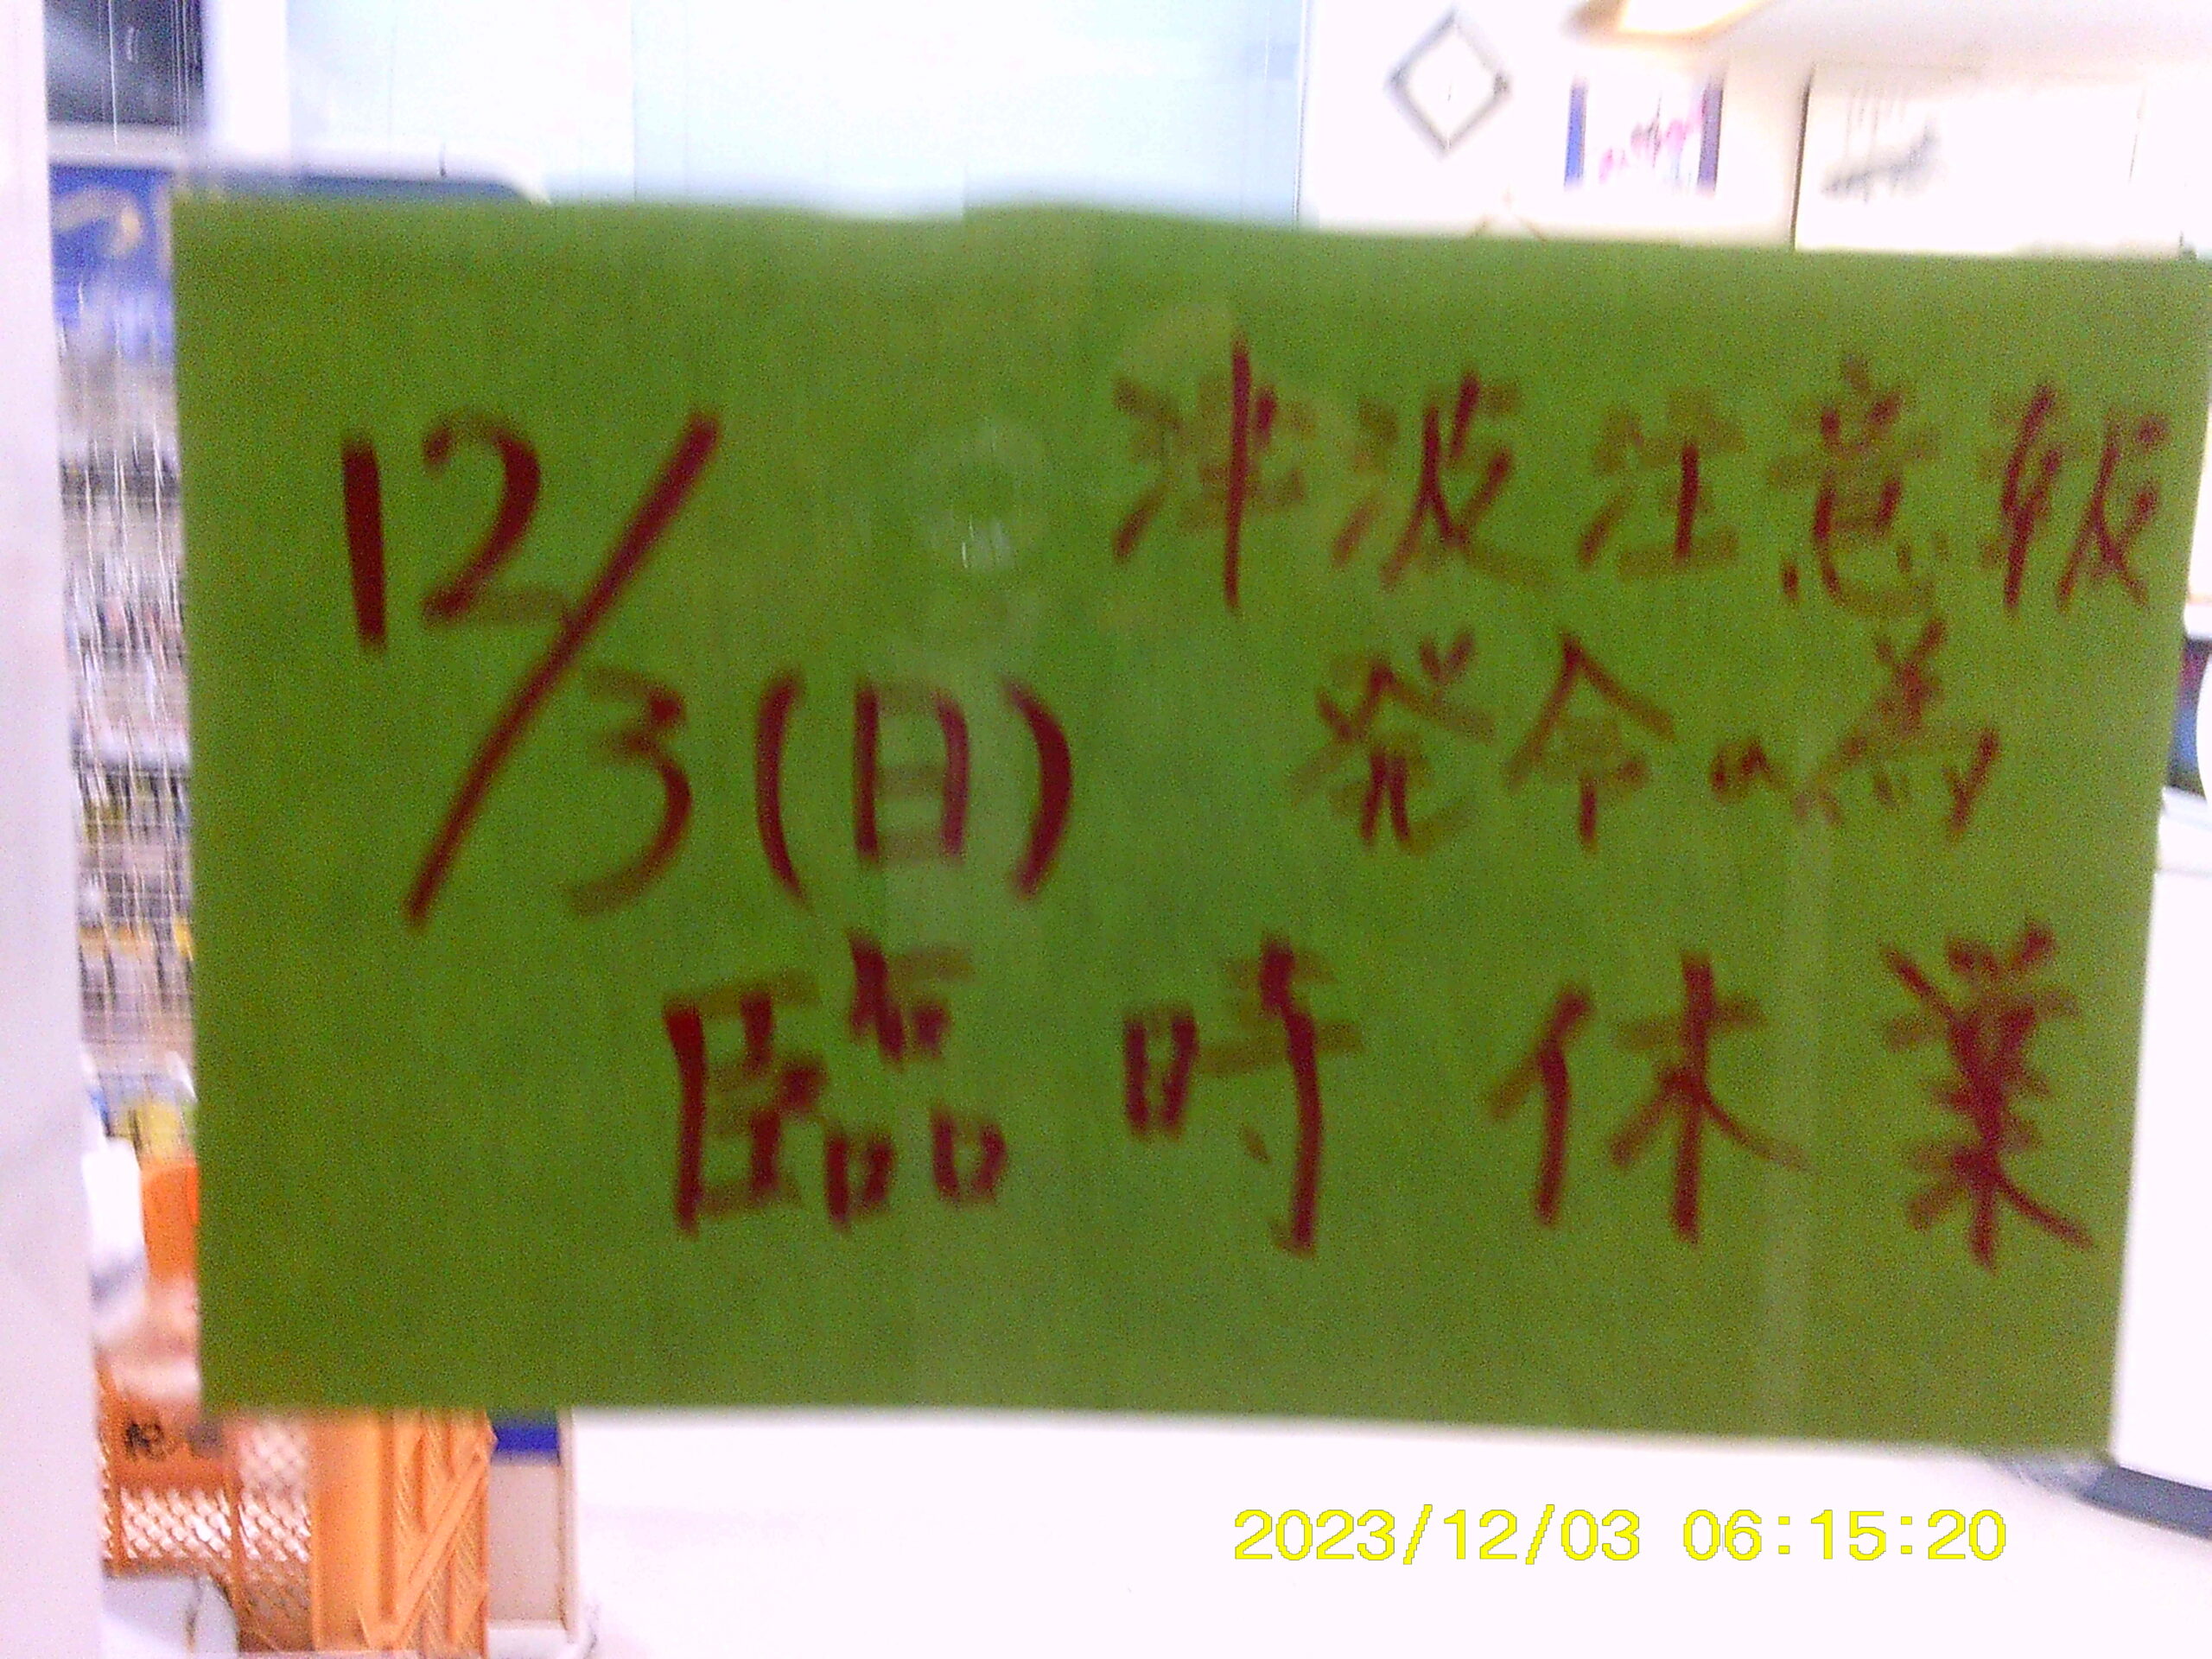 津波注意報
12/3(日) 発令の為
臨時休業
2023/12/03 06:15:20